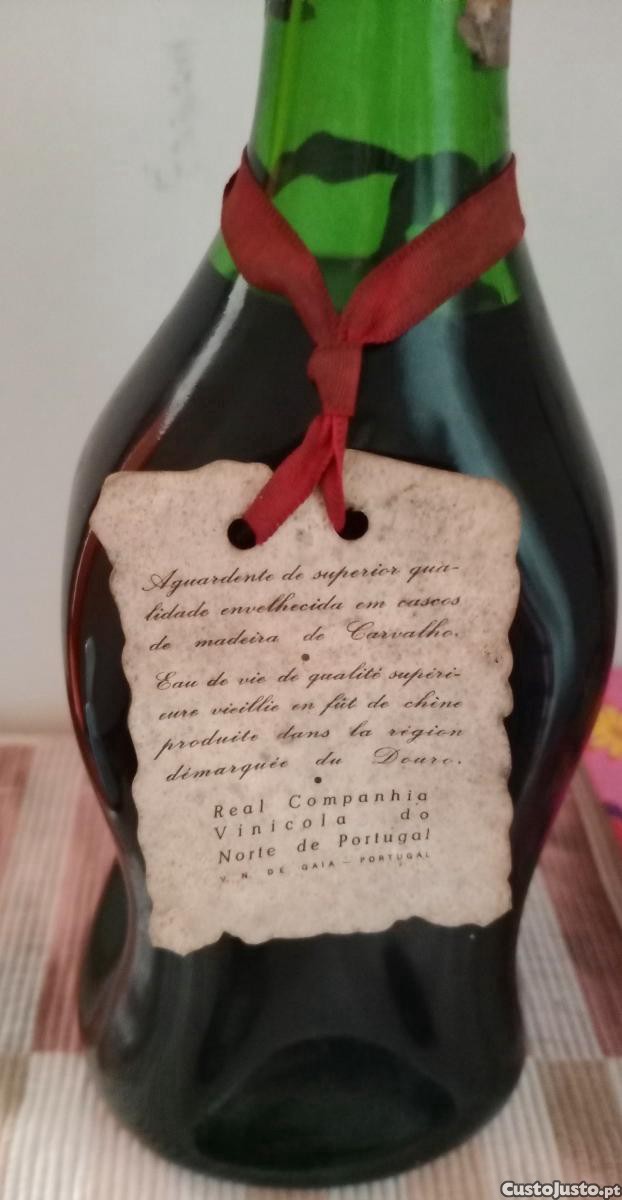 Aguardente de superior qua-
lidade envelhecida em cascos
de madeira de Carvalho.
Eau de vie de qualité supéri-
eure vieillie en fût de chêne
produite dans la région
démarquée du Douro.
Real Companhia
Vinicola do
Norte de Portugal
V. N. DE GAIA — PORTUGAL
CustoJusto.pt